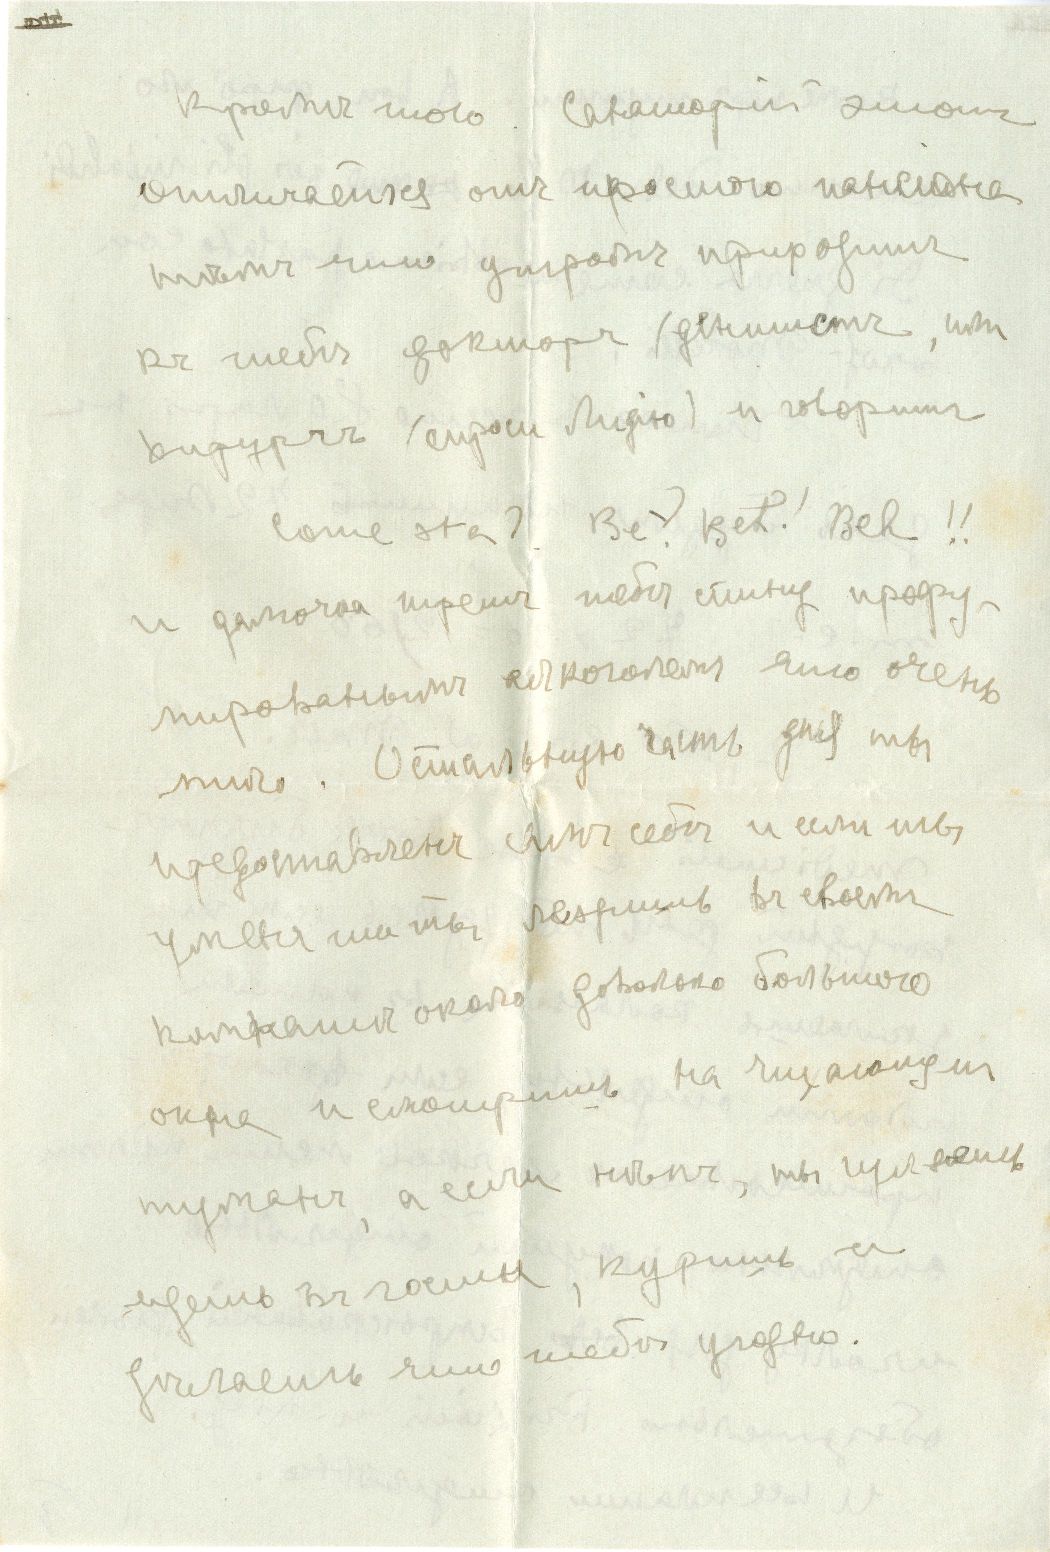 Кромѣ того Санаторій этотъ
отличается отъ простого пансіона
тѣмъ что утромъ приходитъ
къ тебѣ докторъ (дентистъ, или
хирургъ (спроси Лидію) и говоритъ
Come sta? Be? Beh! Beh!!
и дамочка третъ тебѣ спину парфю-
мированнымъ алкоголемъ что очень
мило. Остальную часть дня ты
предоставленъ самъ себѣ и если ты
уменъ то ты лежишь въ своей
комнатѣ около довольно большого
окна и смотришь на
туманъ, а если нѣтъ, ты
идешь въ гости, куришь и
дѣлаешь что тебѣ угодно.